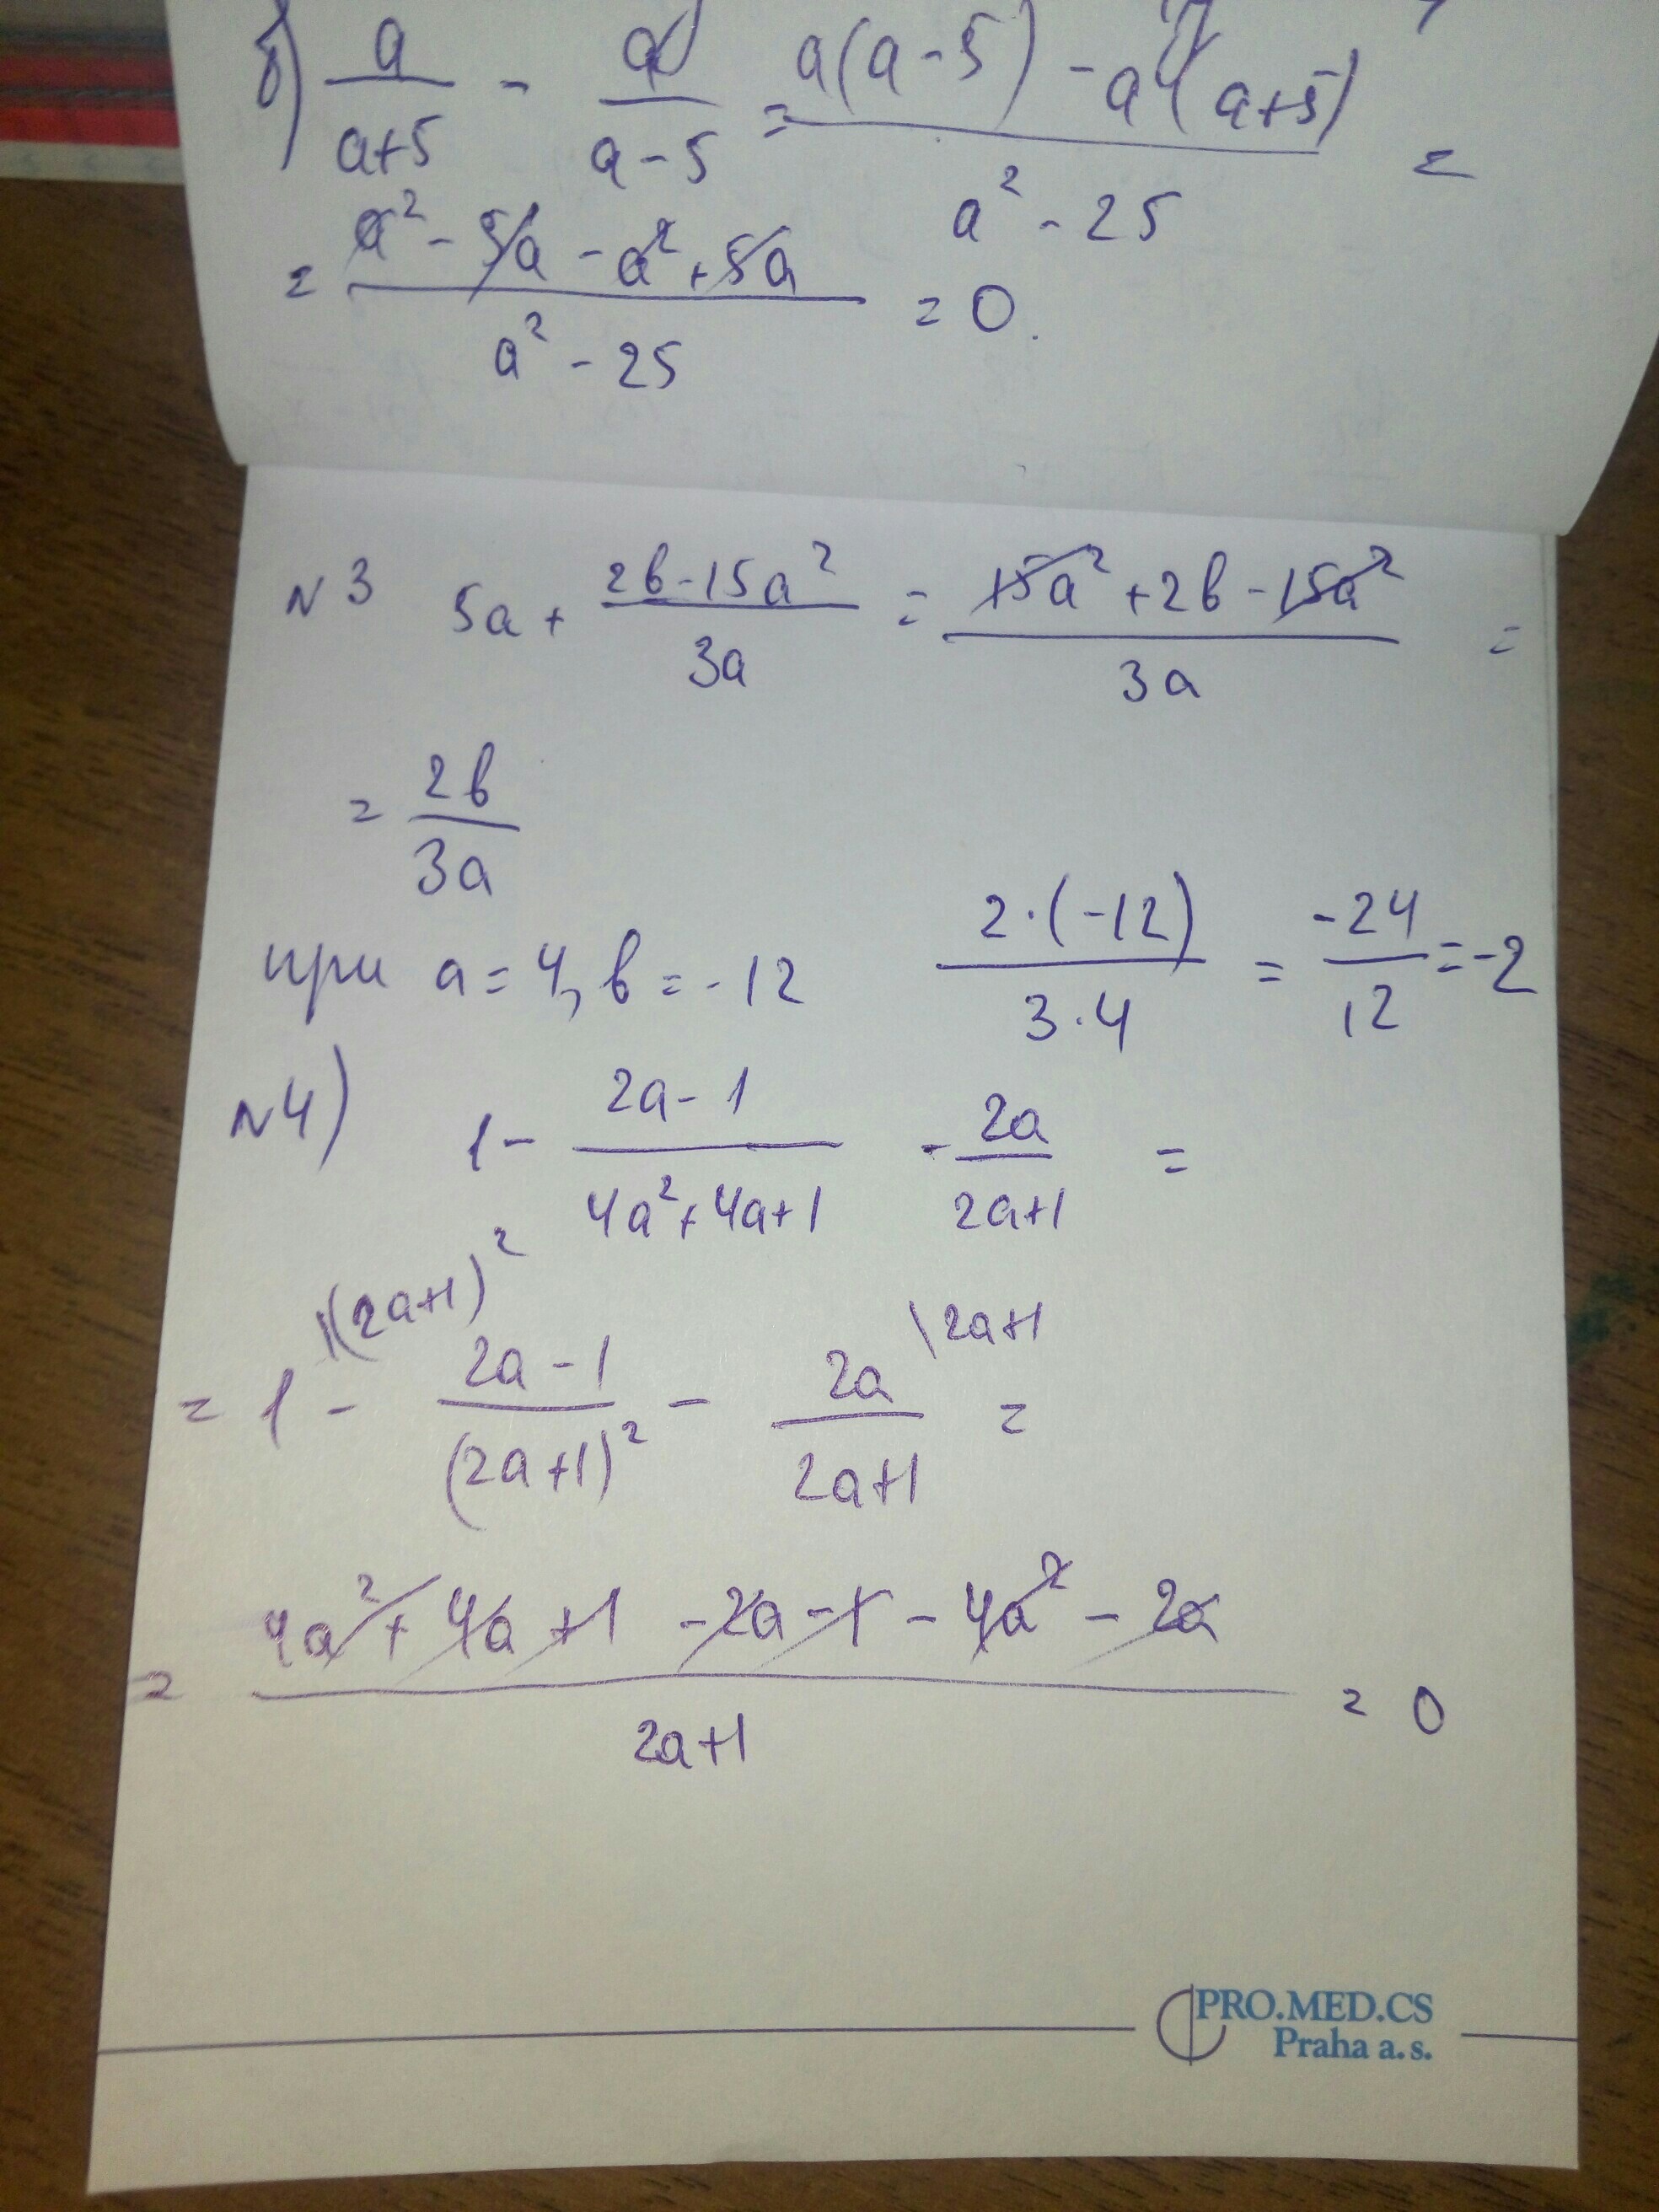 б) a/(a+5) - a/(a-5) = (a(a-5) - a(a+5))/(a² - 25) =
= (a² - 5a - a² + 5a)/(a² - 25) = 0.
N3 5a + (2b-15a²)/(3a) = (15a² + 2b - 15a²)/(3a) =
= 2b/(3a)
при a = 4, b = -12 (2·(-12))/(3·4) = -24/12 = -2
N4) 1 - (2a-1)/(4a²+4a+1) - 2a/(2a+1) =
\(2a+1)² \2a+1
= 1 - (2a-1)/(2a+1)² - 2a/(2a+1) =
= (4a² + 4a + 1 - 2a - 1 - 4a² - 2a)/(2a+1) = 0
PRO.MED.CS
Praha a.s.